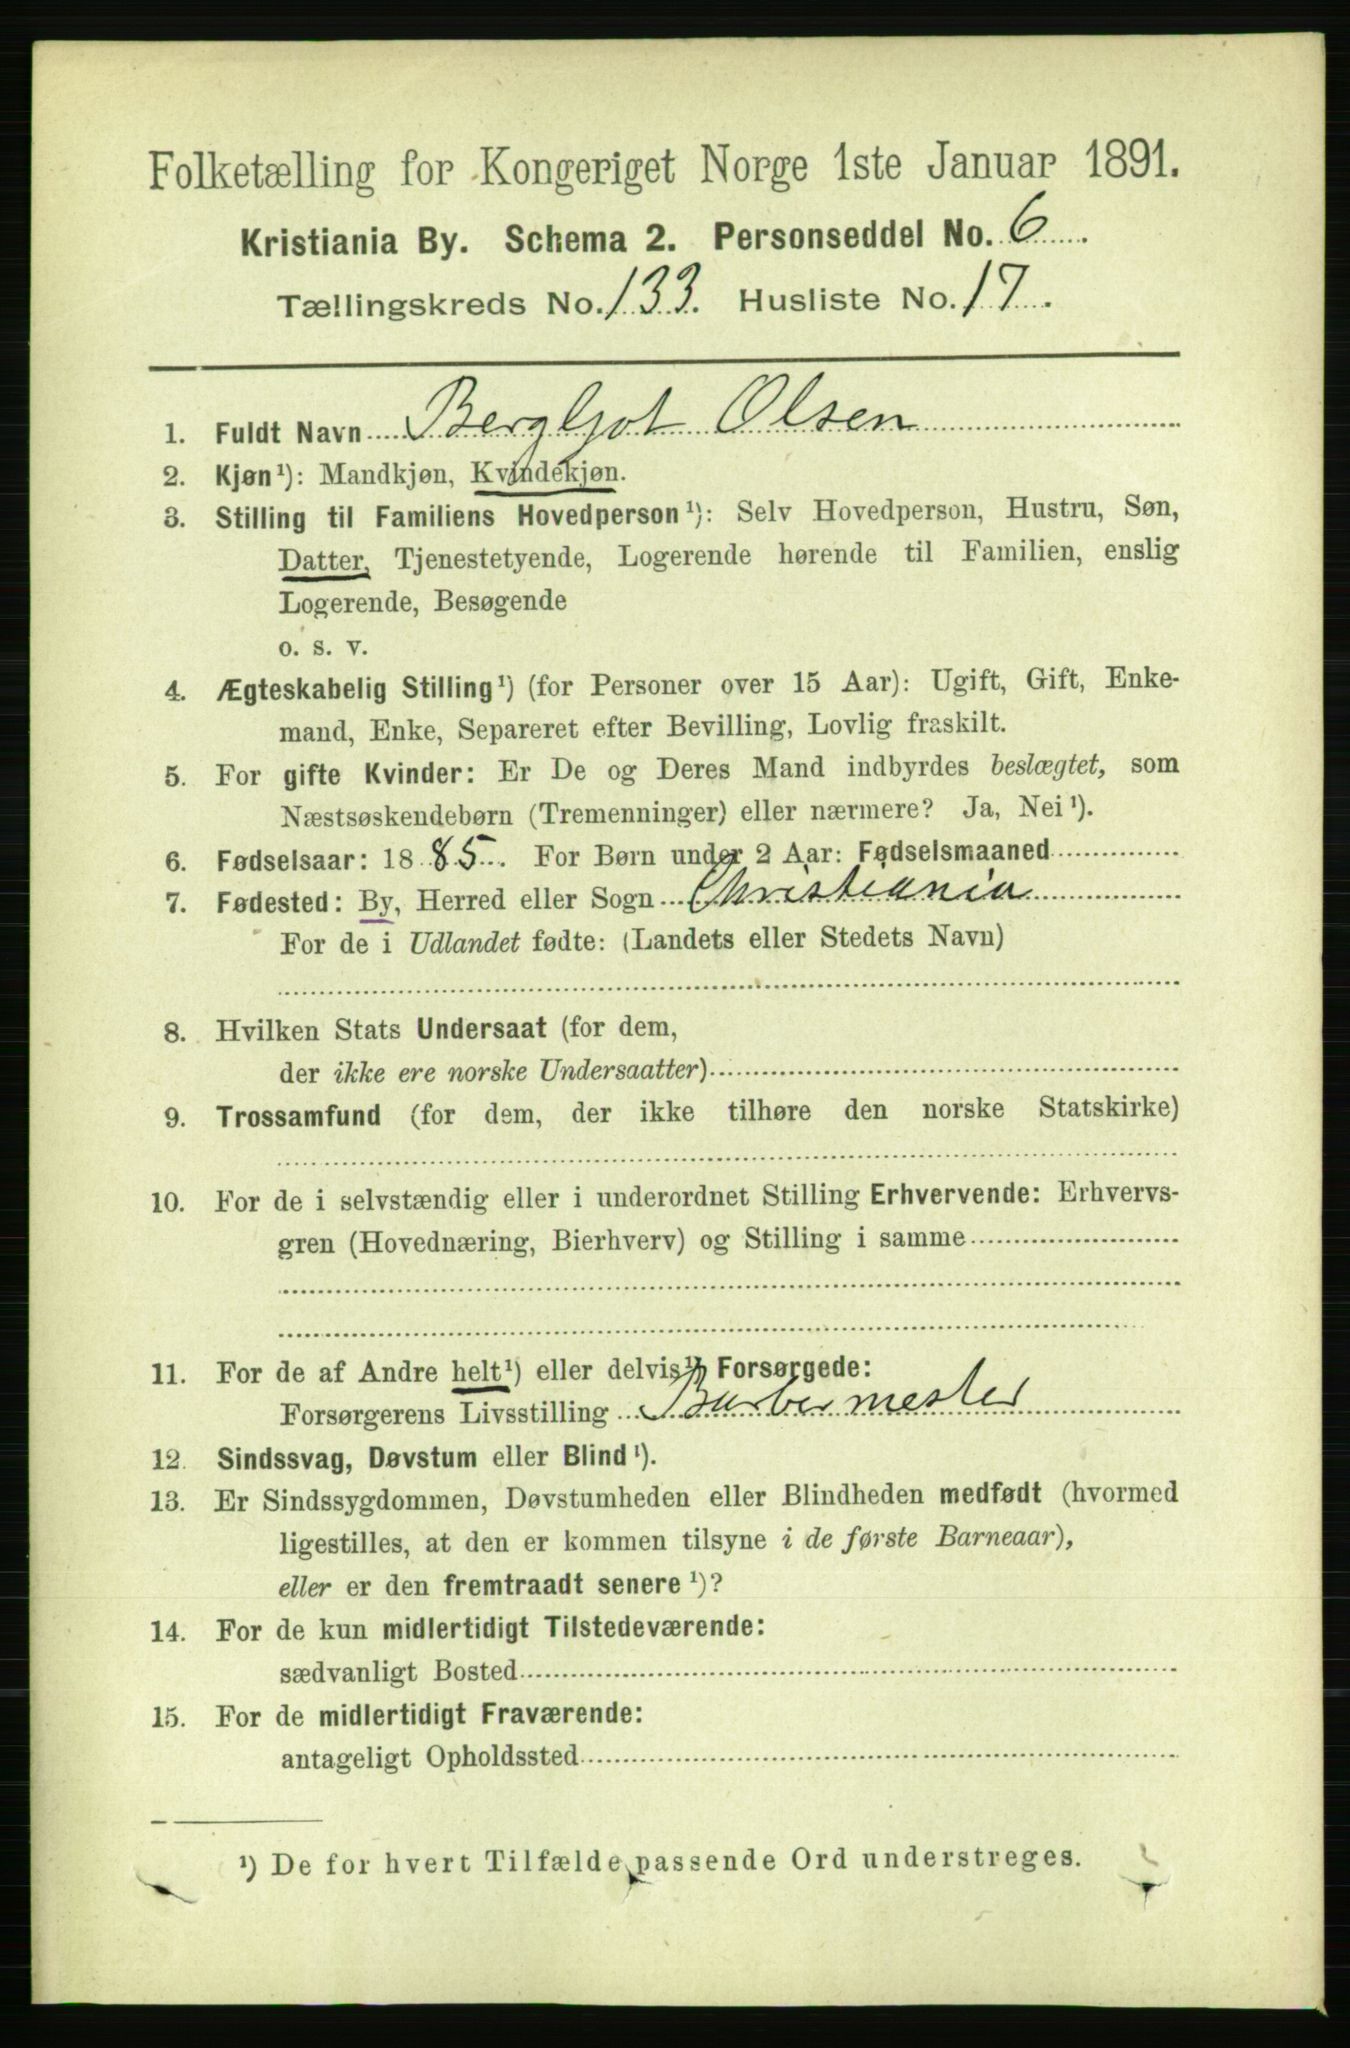 Folketælling for Kongeriget Norge 1ste Januar 1891.
Kristiania By. Schema 2. Personseddel No. 6
Tællingskreds No. 133. Husliste No. 17.
1. Fuldt Navn Bergljot Olsen
2. Kjøn¹): Mandkjøn, Kvindekjøn.
3. Stilling til Familiens Hovedperson¹): Selv Hovedperson, Hustru, Søn,
Datter, Tjenestetyende, Logerende hørende til Familien, enslig
Logerende, Besøgende
o. s. v.
4. Ægteskabelig Stilling¹) (for Personer over 15 Aar): Ugift, Gift, Enke-
mand, Enke, Separeret efter Bevilling, Lovlig fraskilt.
5. For gifte Kvinder: Er De og Deres Mand indbyrdes beslægtet, som
Næstsøskendebørn (Tremenninger) eller nærmere? Ja, Nei¹).
6. Fødselsaar: 1885. For Børn under 2 Aar: Fødselsmaaned
7. Fødested: By, Herred eller Sogn Christiania
For de i Udlandet fødte: (Landets eller Stedets Navn)
8. Hvilken Stats Undersaat (for dem,
der ikke ere norske Undersaatter)
9. Trossamfund (for dem, der ikke tilhøre den norske Statskirke)
10. For de i selvstændig eller i underordnet Stilling Erhvervende: Erhvervs-
gren (Hovednæring, Bierhverv) og Stilling i samme
11. For de af Andre helt¹) eller delvis¹) Forsørgede:
Forsørgerens Livsstilling Barbermester
12. Sindssvag, Døvstum eller Blind¹).
13. Er Sindssygdommen, Døvstumheden eller Blindheden medfødt (hvormed
ligestilles, at den er kommen tilsyne i de første Barneaar),
eller er den fremtraadt senere¹)?
14. For de kun midlertidigt Tilstedeværende:
sædvanligt Bosted
15. For de midlertidigt Fraværende:
antageligt Opholdssted
¹) De for hvert Tilfælde passende Ord understreges.